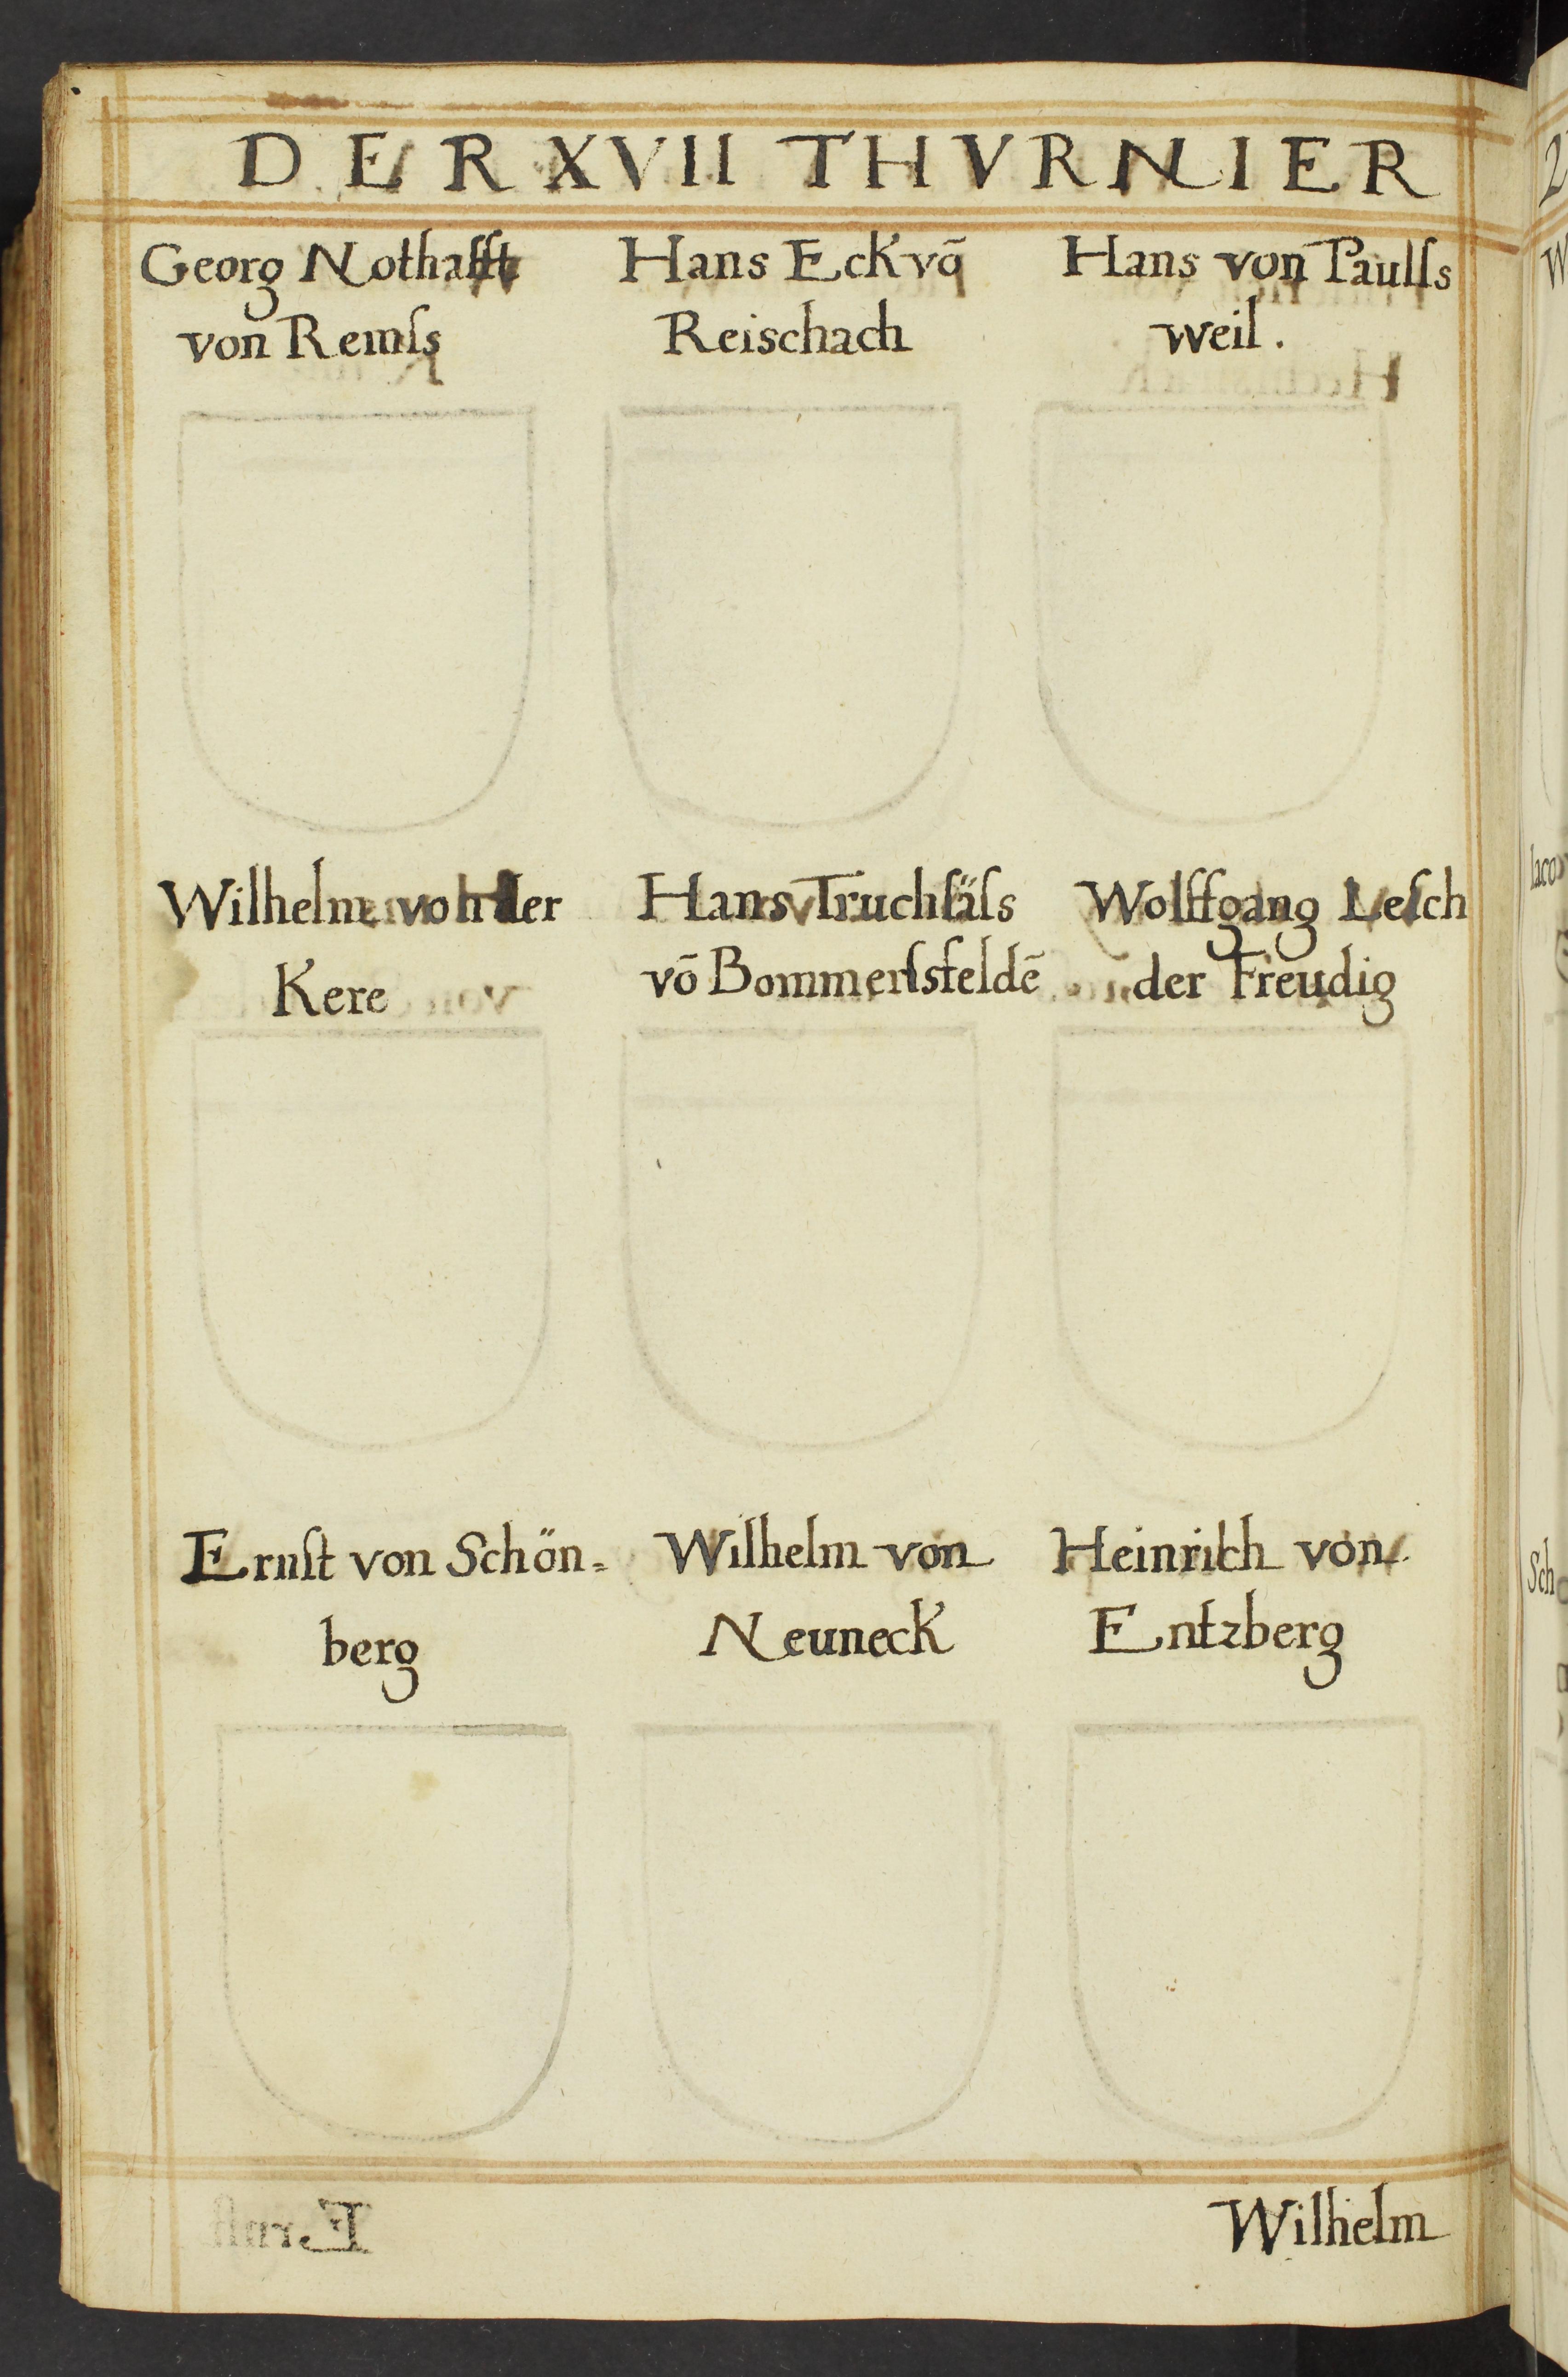 DER XVII THVRNIER
Georg Nothafft
von Remſs
Hans Eck vō
Reischach
Hans von Paulſs
weil.
Wilhelm von der
Kere
Hans Truchſäſs
vō Bommerſsfeldē
Wolffgang Leſch
der Freudig
Ernſt von Schön=
berg
Wilhelm von
Neuneck
Heinrich von
Entzberg
Wilhelm